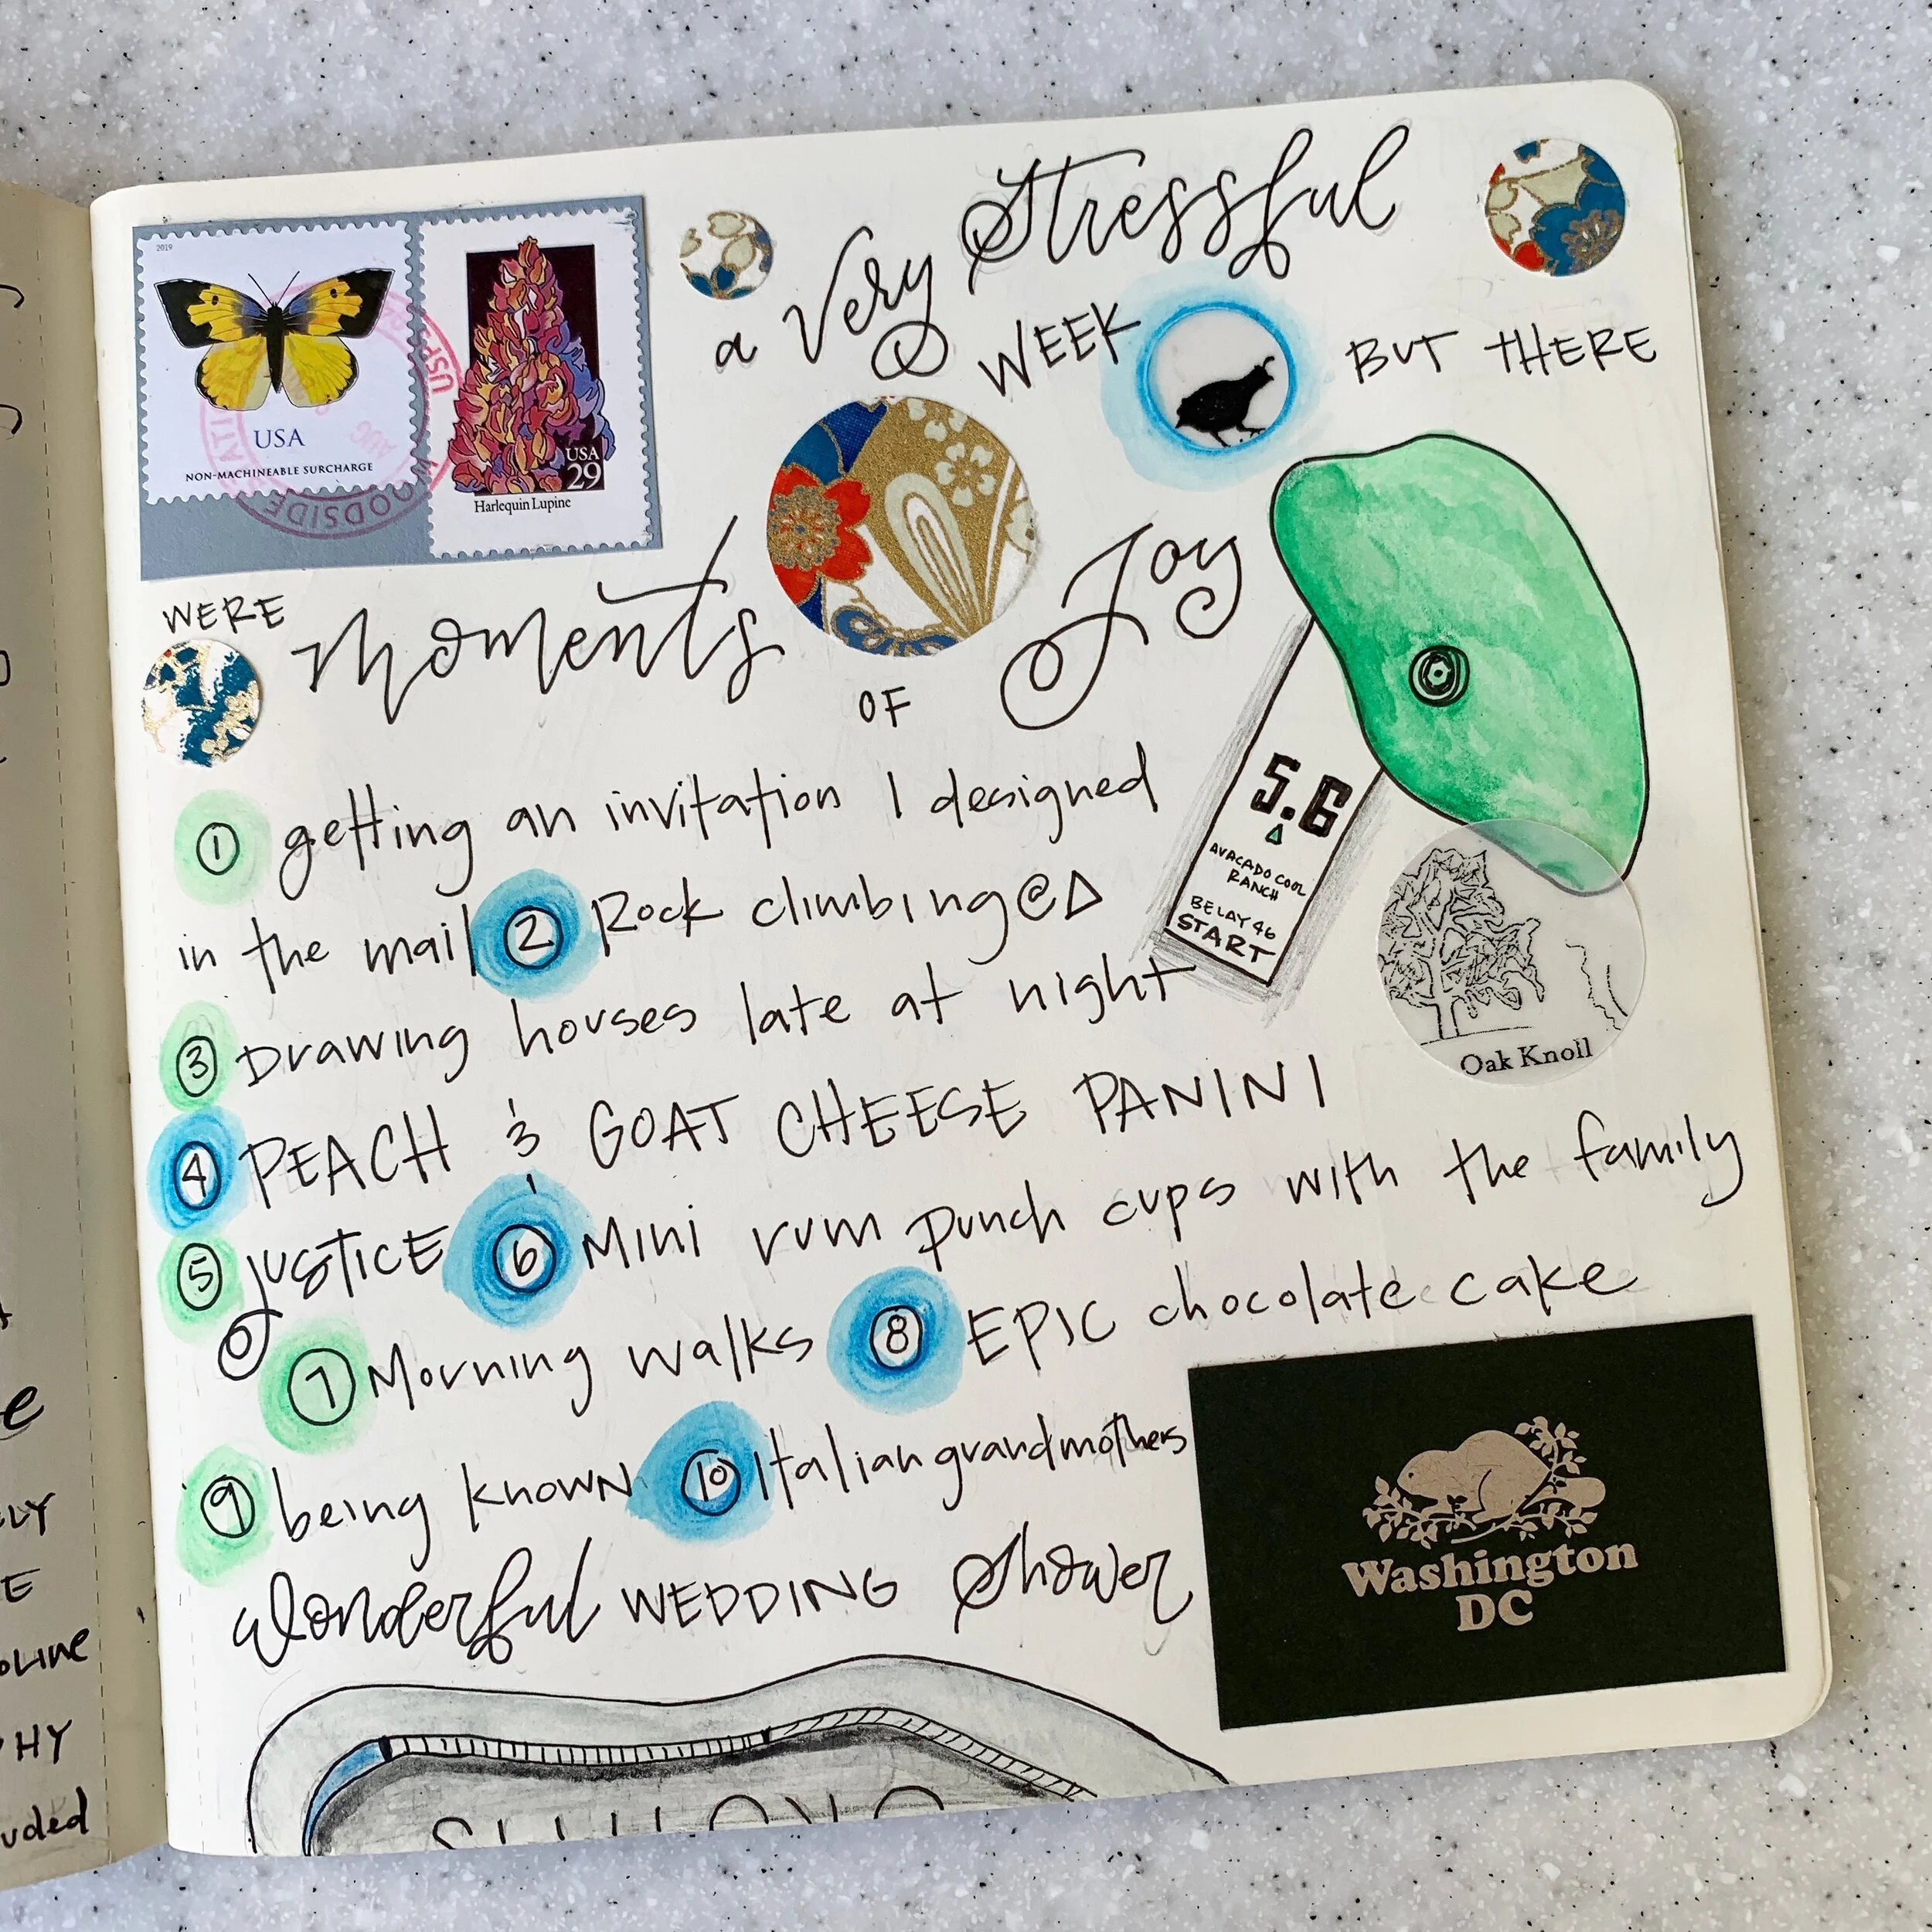 2019
USA
NON-MACHINEABLE SURCHARGE
USA
29
Harlequin Lupine
USPS
WOODSIDE
AUG
a Very Stressful
WEEK BUT THERE
WERE Moments OF Joy
5.6
AVACADO COOL
RANCH
BELAY 46
START
Oak Knoll
1 getting an invitation I designed
in the mail 2 Rock climbing @ Δ
3 Drawing houses late at night
4 PEACH & GOAT CHEESE PANINI
5 JUSTICE 6 Mini rum punch cups with the family
7 Morning walks 8 EPIC chocolate cake
9 being known 10 Italian grandmothers
Wonderful WEDDING Shower
Washington
DC
e
LY
E
HY
uded